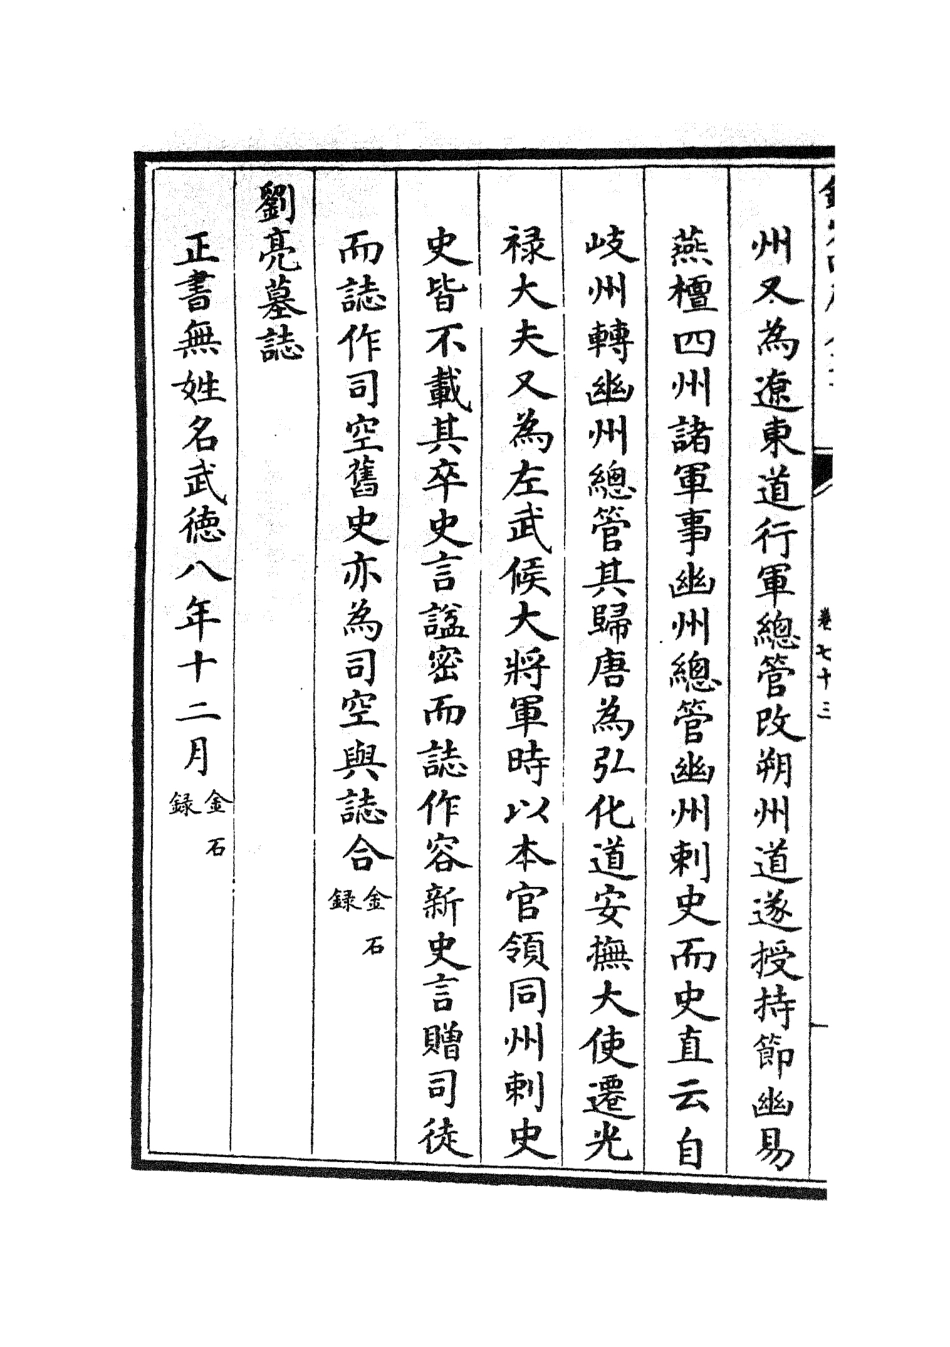 卷七十三
州又為遼東道行軍總管改朔州道遂授持節幽易
燕檀四州諸軍事幽州總管幽州刺史而史直云自
岐州轉幽州總管其歸唐為弘化道安撫大使遷光
禄大夫又為左武候大將軍時以本官領同州刺史
史皆不載其卒史言謚密而誌作容新史言贈司徒
而誌作司空舊史亦為司空與誌合金石録
劉亮墓誌
正書無姓名武徳八年十二月金石録